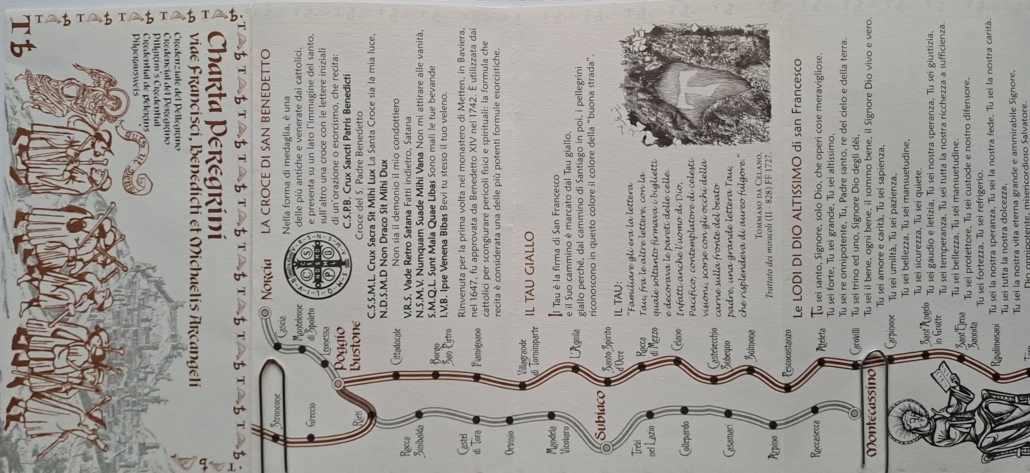 Charta Peregrini
viae Francisci, Benedicti et Michaelis Arcangeli
Credenziale del Pellegrino
Credencial du Pelerin
Pilgrim's Credential
Credencial de Peregrinos
LA CROCE DI SAN BENEDETTO
Nella forma di medaglia, è una
delle più antiche e venerate dai cattolici,
e presenta su un lato l'immagine del santo,
sull'altro una croce con le lettere iniziali
di un'orazione o esorcismo, che recita:
C.S.P.B. Crux Sancti Patris Benedicti
Croce del S. Padre Benedetto
C.S.S.M.L. Crux Sacra Sit Mihi Lux La Santa Croce sia la mia luce,
N.D.S.M.D Non Draco Sit Mihi Dux
Non sia il demonio il mio condottiero
V.R.S. Vade Retro Satana Fatti indietro, Satana
N.S.M.V. Nunquam Suade Mihi Vana Non mi attirare alle vanità,
S.M.Q.L. Sunt Mala Quae Libas Sono mali le tue bevande
I.V.B. Ipse Venena Bibas Bevi tu stesso il tuo veleno.
Rinvenuta per la prima volta nel monastero di Metten, in Baviera,
nel 1647, fu approvata da Benedetto XIV nel 1742. È utilizzata dai
cattolici per scongiurare pericoli fisici e spirituali: la formula che
recita è considerata una delle più potenti formule esorcistiche.
IL TAU GIALLO
Il Tau è la firma di San Francesco
e il Suo cammino è marcato dal Tau giallo,
giallo perché, dal cammino di Santiago in poi, i pellegrini
riconoscono in questo colore il colore della "buona strada".
IL TAU:
"Familiare gli era la lettera
Tau, fra le altre lettere, con la
quale soltanto firmava i biglietti
e decorava le pareti delle celle.
Infatti anche l'uomo di Dio,
Pacifico, contemplatore di celesti
visioni, scorse con gli occhi della
carne sulla fronte del beato
padre, una grande lettera Tau,
che risplendeva di aureo fulgore."
TOMMASO DA CELANO,
Trattato dei miracoli (II - 828) FF 727.
Le LODI DI DIO ALTISSIMO di san Francesco
Tu sei santo, Signore, solo Dio, che operi cose meravigliose.
Tu sei forte, Tu sei grande, Tu sei altissimo,
Tu sei re onnipotente, Tu, Padre santo, re del cielo e della terra.
Tu sei trino ed uno, Signore Dio degli dèi,
Tu sei il bene, ogni bene, il sommo bene, il Signore Dio vivo e vero.
Tu sei amore e carità, Tu sei sapienza,
Tu sei umiltà, Tu sei pazienza,
Tu sei bellezza, Tu sei mansuetudine,
Tu sei sicurezza, Tu sei quiete.
Tu sei gaudio e letizia, Tu sei nostra speranza, Tu sei giustizia,
Tu sei temperanza, Tu sei tutta la nostra ricchezza a sufficienza.
Tu sei bellezza, Tu sei mansuetudine.
Tu sei protettore, Tu sei custode e nostro difensore,
Tu sei fortezza, Tu sei refrigerio.
Tu sei la nostra speranza, Tu sei la nostra fede, Tu sei la nostra carità.
Tu sei tutta la nostra dolcezza,
Tu sei la nostra vita eterna, grande e ammirabile Signore,
Dio onnipotente, misericordioso Salvatore.
Norcia
Cascia
Monteleone
di Spoleto
Leonessa
Poggio
Bustone
Cittaducale
Borgo
San Pietro
Fiumignano
Villagrande
di Tornimparte
L'Aquila
Santo Spirito
d'Ocre
Rocca
di Mezzo
Celano
Castelvecchio
Subequo
Sulmona
Pescocostanzo
Alfedena
Castelli
Carpinone
Sant'Angelo
in Grotte
Sant'Elena
Sannita
Ripalimosani
Stroncone
Greccio
Rieti
Rocca
Sinibalda
Castel
di Tora
Orvinio
Mandela
Vicovaro
Subiaco
Trevi
nel Lazio
Collepardo
Casamari
Arpino
Roccasecca
Montecassino